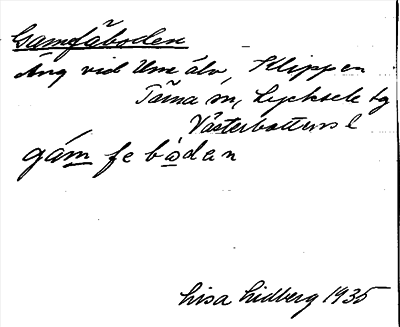 Gamfäboden
Äng vid Ume älv, Klippen
Tärna sn, Lycksele tg
Västerbottens l
gám fe bòden
Lisa Lidberg 1935